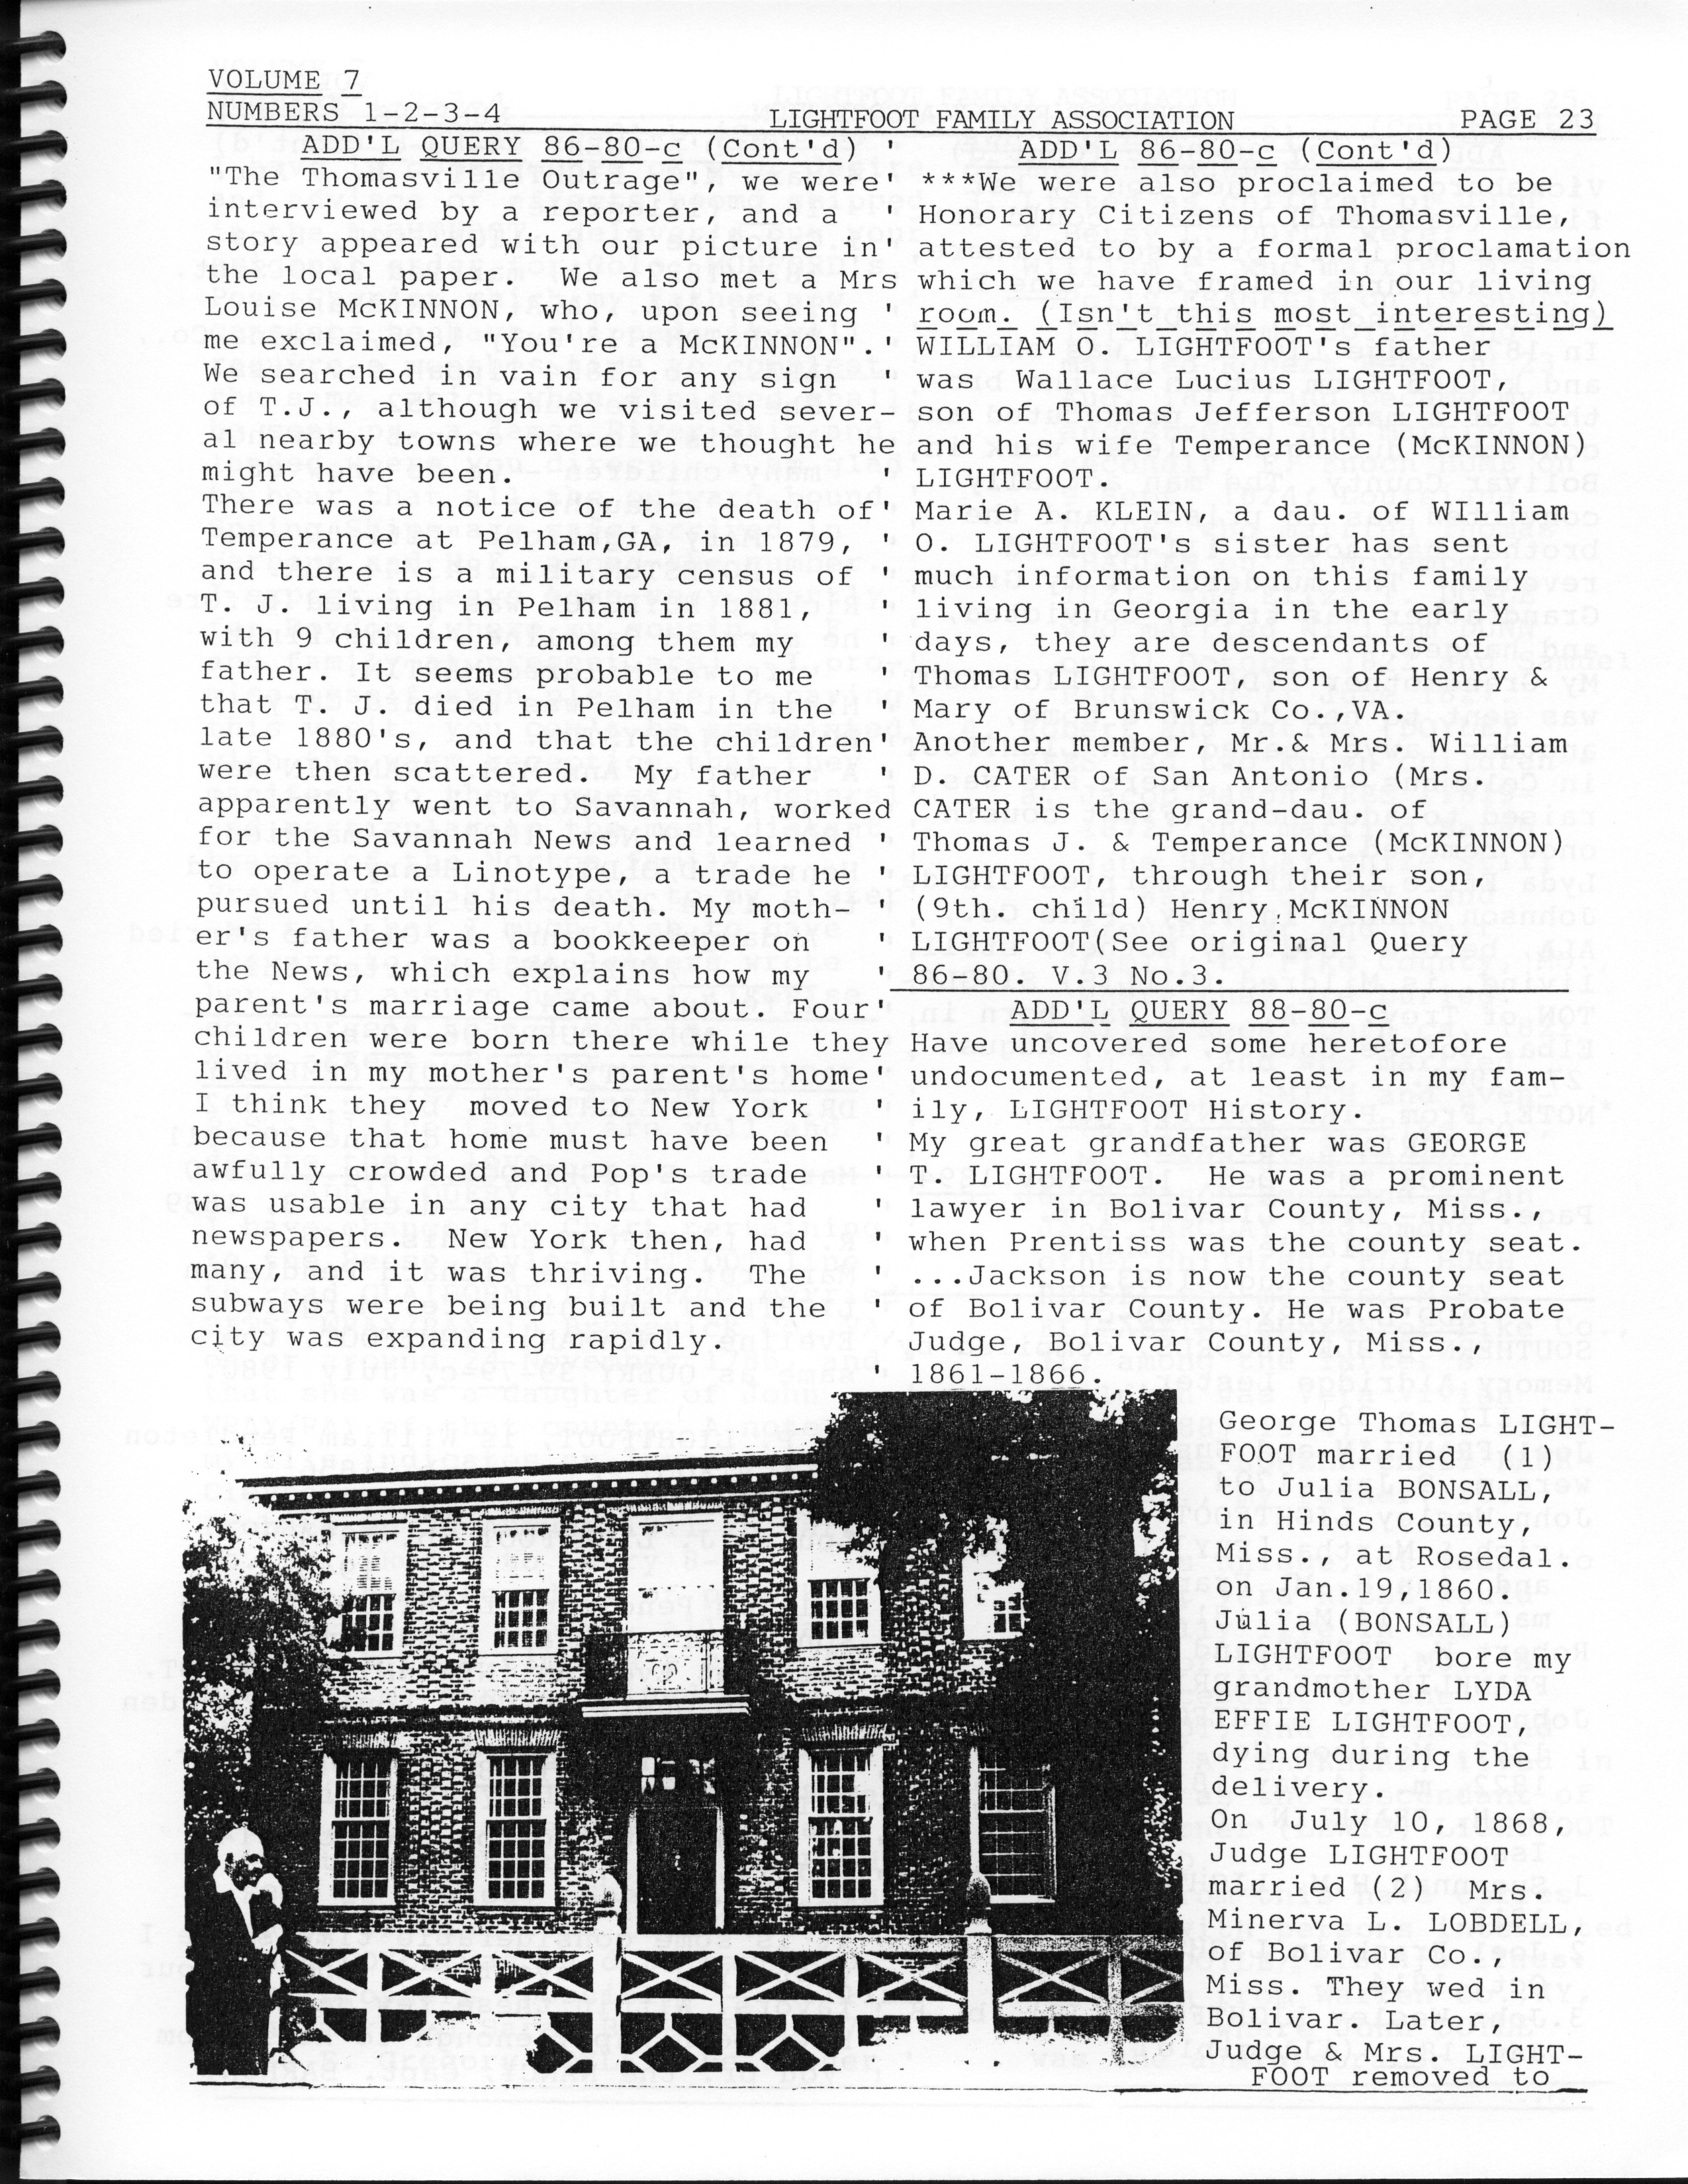 VOLUME 7
NUMBERS 1-2-3-4
LIGHTFOOT FAMILY ASSOCIATION
PAGE 23
ADD'L QUERY 86-80-c (Cont'd) '
"The Thomasville Outrage", we were'
interviewed by a reporter, and a '
story appeared with our picture in'
the local paper. We also met a Mrs
Louise McKINNON, who, upon seeing '
me exclaimed, "You're a McKINNON".'
We searched in vain for any sign '
of T.J., although we visited sever-
al nearby towns where we thought he
might have been. '
There was a notice of the death of'
Temperance at Pelham,GA, in 1879, '
and there is a military census of '
T. J. living in Pelham in 1881, '
with 9 children, among them my '
father. It seems probable to me '
that T. J. died in Pelham in the '
late 1880's, and that the children'
were then scattered. My father '
apparently went to Savannah, worked
for the Savannah News and learned '
to operate a Linotype, a trade he '
pursued until his death. My moth- '
er's father was a bookkeeper on '
the News, which explains how my '
parent's marriage came about. Four'
children were born there while they
lived in my mother's parent's home'
I think they moved to New York '
because that home must have been '
awfully crowded and Pop's trade '
was usable in any city that had '
newspapers. New York then, had '
many, and it was thriving. The '
subways were being built and the '
city was expanding rapidly.
'
ADD'L 86-80-c (Cont'd)
***We were also proclaimed to be
Honorary Citizens of Thomasville,
attested to by a formal proclamation
which we have framed in our living
room. (Isn't this most interesting)
WILLIAM O. LIGHTFOOT's father
was Wallace Lucius LIGHTFOOT,
son of Thomas Jefferson LIGHTFOOT
and his wife Temperance (McKINNON)
LIGHTFOOT.
Marie A. KLEIN, a dau. of WIlliam
O. LIGHTFOOT's sister has sent
much information on this family
living in Georgia in the early
days, they are descendants of
Thomas LIGHTFOOT, son of Henry &
Mary of Brunswick Co.,VA.
Another member, Mr.& Mrs. William
D. CATER of San Antonio (Mrs.
CATER is the grand-dau. of
Thomas J. & Temperance (McKINNON)
LIGHTFOOT, through their son,
(9th. child) Henry McKINNON
LIGHTFOOT(See original Query
86-80. V.3 No.3.
ADD'L QUERY 88-80-c
Have uncovered some heretofore
undocumented, at least in my fam-
ily, LIGHTFOOT History.
My great grandfather was GEORGE
T. LIGHTFOOT. He was a prominent
lawyer in Bolivar County, Miss.,
when Prentiss was the county seat.
...Jackson is now the county seat
of Bolivar County. He was Probate
Judge, Bolivar County, Miss.,
1861-1866.
George Thomas LIGHT-
FOOT married (1)
to Julia BONSALL,
in Hinds County,
Miss., at Rosedal.
on Jan.19,1860.
Julia (BONSALL)
LIGHTFOOT bore my
grandmother LYDA
EFFIE LIGHTFOOT,
dying during the
delivery.
On July 10, 1868,
Judge LIGHTFOOT
married (2) Mrs.
Minerva L. LOBDELL,
of Bolivar Co.,
Miss. They wed in
Bolivar. Later,
Judge & Mrs. LIGHT-
FOOT removed to